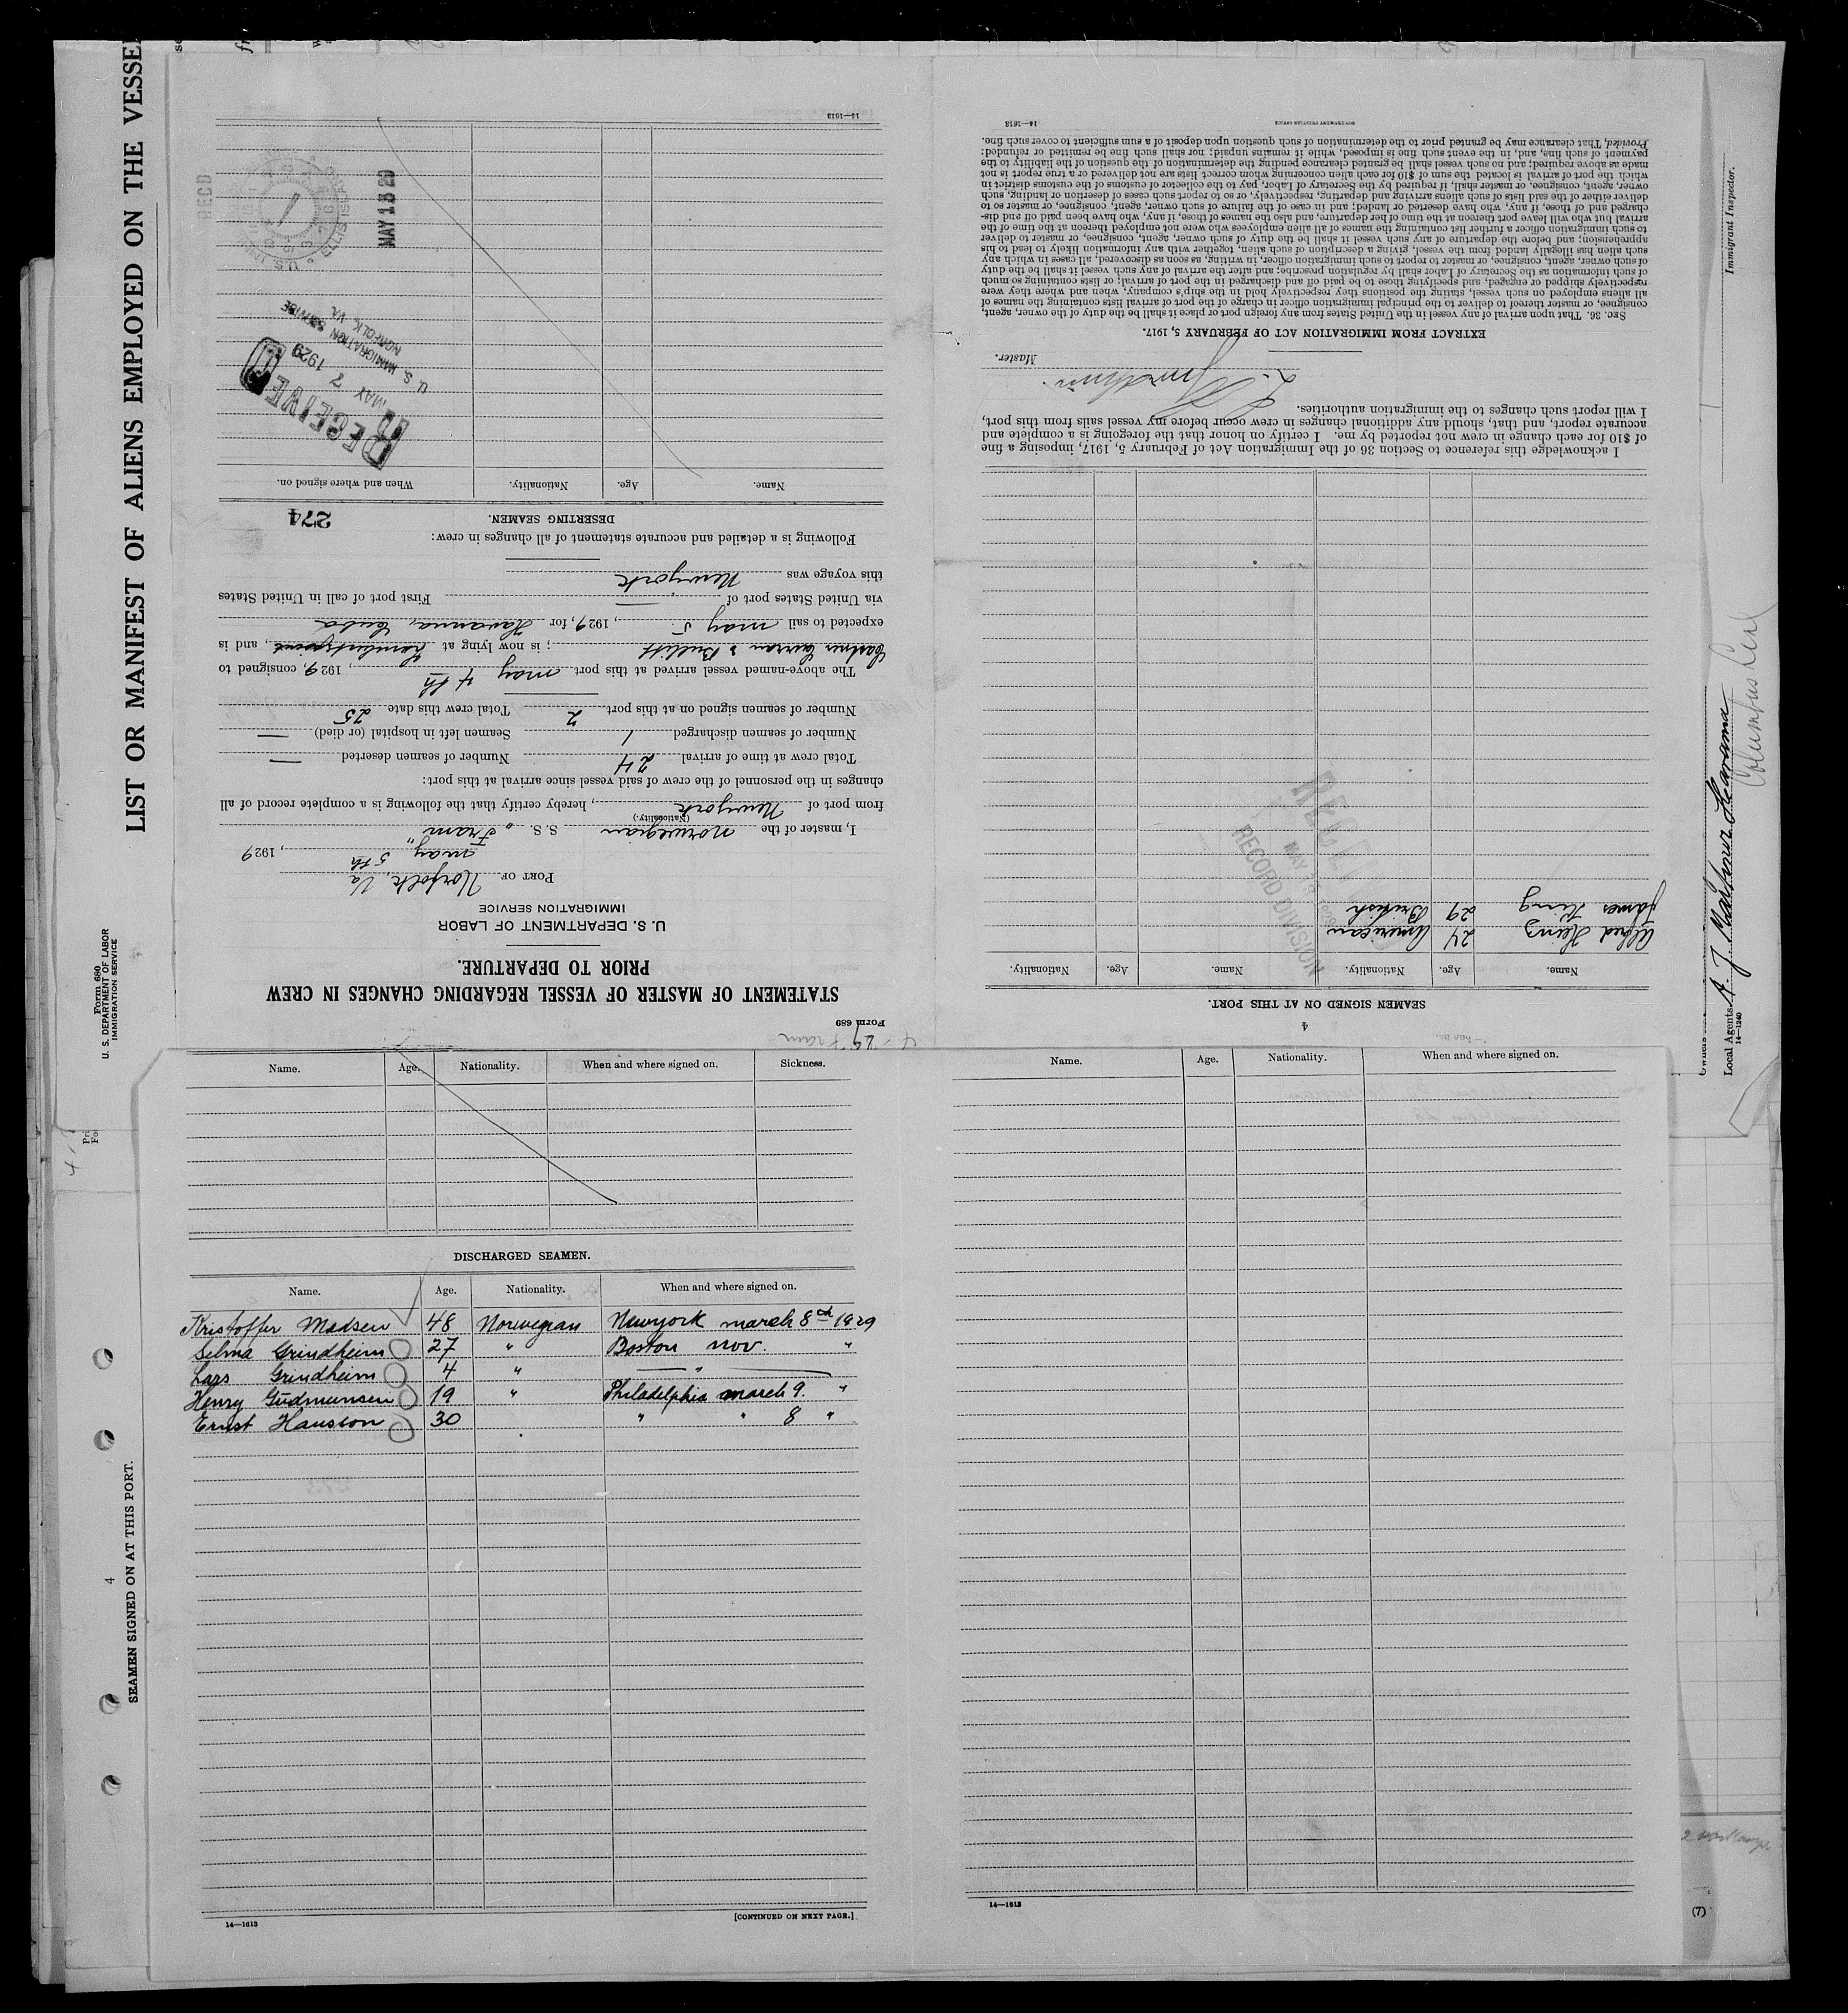 LIST OR MANIFEST OF ALIENS EMPLOYED ON THE VESSEL
Form 680
U. S. DEPARTMENT OF LABOR
IMMIGRATION SERVICE
Form 689
STATEMENT OF MASTER OF VESSEL REGARDING CHANGES IN CREW
PRIOR TO DEPARTURE.
U. S. DEPARTMENT OF LABOR
IMMIGRATION SERVICE
PORT OF Norfolk, Va
may 5th, 1929
I, master of the norwegian S. S. "Fram"
(Nationality.)
from port of Newyork, hereby certify that the following is a complete record of all
changes in the personnel of the crew of said vessel since arrival at this port:
Total crew at time of arrival 24 Number of seamen deserted —
Number of seamen discharged 1 Seamen left in hospital (or died) —
Number of seamen signed on at this port 2 Total crew this date 25
The above-named vessel arrived at this port may 4th, 1929, consigned to
Castner Curran & Bullitt; is now lying at Lambertspoint, and is
expected to sail may 5, 1929, for Havanna, Cuba
via United States port of — First port of call in United States
this voyage was Newyork
Following is a detailed and accurate statement of all changes in crew:
DESERTING SEAMEN. 274
Name. Age. Nationality. When and where signed on.
RECEIVED
MAY 7 1929
U. S. IMMIGRATION SERVICE
NORFOLK, VA.
MAY 13 29
REC'D
14—1613
4
SEAMEN SIGNED ON AT THIS PORT.
Name. Age. Nationality. Name. Age. Nationality.
Alfred Heinz 24 American
James King 29 British
RECEIVED
MAY 15 1929
RECORD DIVISION
I acknowledge this reference to Section 36 of the Immigration Act of February 5, 1917, imposing a fine
of $10 for each change in crew not reported by me. I certify on honor that the foregoing is a complete and
accurate report, and that, should any additional changes in crew occur before my vessel sails from this port,
I will report such changes to the immigration authorities.
Master.
EXTRACT FROM IMMIGRATION ACT OF FEBRUARY 5, 1917.
SEC. 36. That upon arrival of any vessel in the United States from any foreign port or place it shall be the duty of the owner, agent,
consignee, or master thereof to deliver to the principal immigration officer in charge of the port of arrival lists containing the names of
all aliens employed on such vessel, stating the positions they respectively hold in the ship's company, when and where they were
respectively shipped or engaged, and specifying those to be paid off and discharged in the port of arrival; or lists containing so much
of such information as the Secretary of Labor shall by regulation prescribe; and after the arrival of any such vessel it shall be the duty
of such owner, agent, consignee, or master to report to such immigration officer, in writing, as soon as discovered, all cases in which any
such alien has illegally landed from the vessel, giving a description of such alien, together with any information likely to lead to his
apprehension; and before the departure of any such vessel it shall be the duty of such owner, agent, consignee, or master to deliver
to such immigration officer a further list containing the names of all alien employees who were not employed thereon at the time of the
arrival but who will leave port thereon at the time of her departure, and also the names of those, if any, who have been paid off and dis-
charged and of those, if any, who have deserted or landed; and in case of the failure of such owner, agent, consignee, or master so to
deliver either of the said lists of such aliens arriving and departing, respectively, or so to report such cases of desertion or landing, such
owner, agent, consignee, or master shall, if required by the Secretary of Labor, pay to the collector of customs of the customs district in
which the port of arrival is located the sum of $10 for each alien concerning whom correct lists are not delivered or a true report is not
made as above required; and no such vessel shall be granted clearance pending the determination of the question of the liability to the
payment of such fine, and, in the event such fine is imposed, while it remains unpaid; nor shall such fine be remitted or refunded:
Provided, That clearance may be granted prior to the determination of such question upon deposit of a sum sufficient to cover such fine.
14—1613
GOVERNMENT PRINTING OFFICE
Immigrant Inspector.
Local Agents A. J. Martinez Havana
14—1240
Name. Age. Nationality. When and where signed on. Sickness.
DISCHARGED SEAMEN.
Name. Age. Nationality. When and where signed on.
Kristoffer Madsen 48 Norwegian Newyork march 8th 1929
Selma Grindheim 27 " Boston nov. "
Lars Grindheim 4 " — " —
Henry Gudmunsen 19 " Philadelphia march 9. "
Ernst Hansson 30 " " 8 "
14—1613
[CONTINUED ON NEXT PAGE.]
Name. Age. Nationality. When and where signed on.
14—1613
4
SEAMEN SIGNED ON AT THIS PORT.
(7)